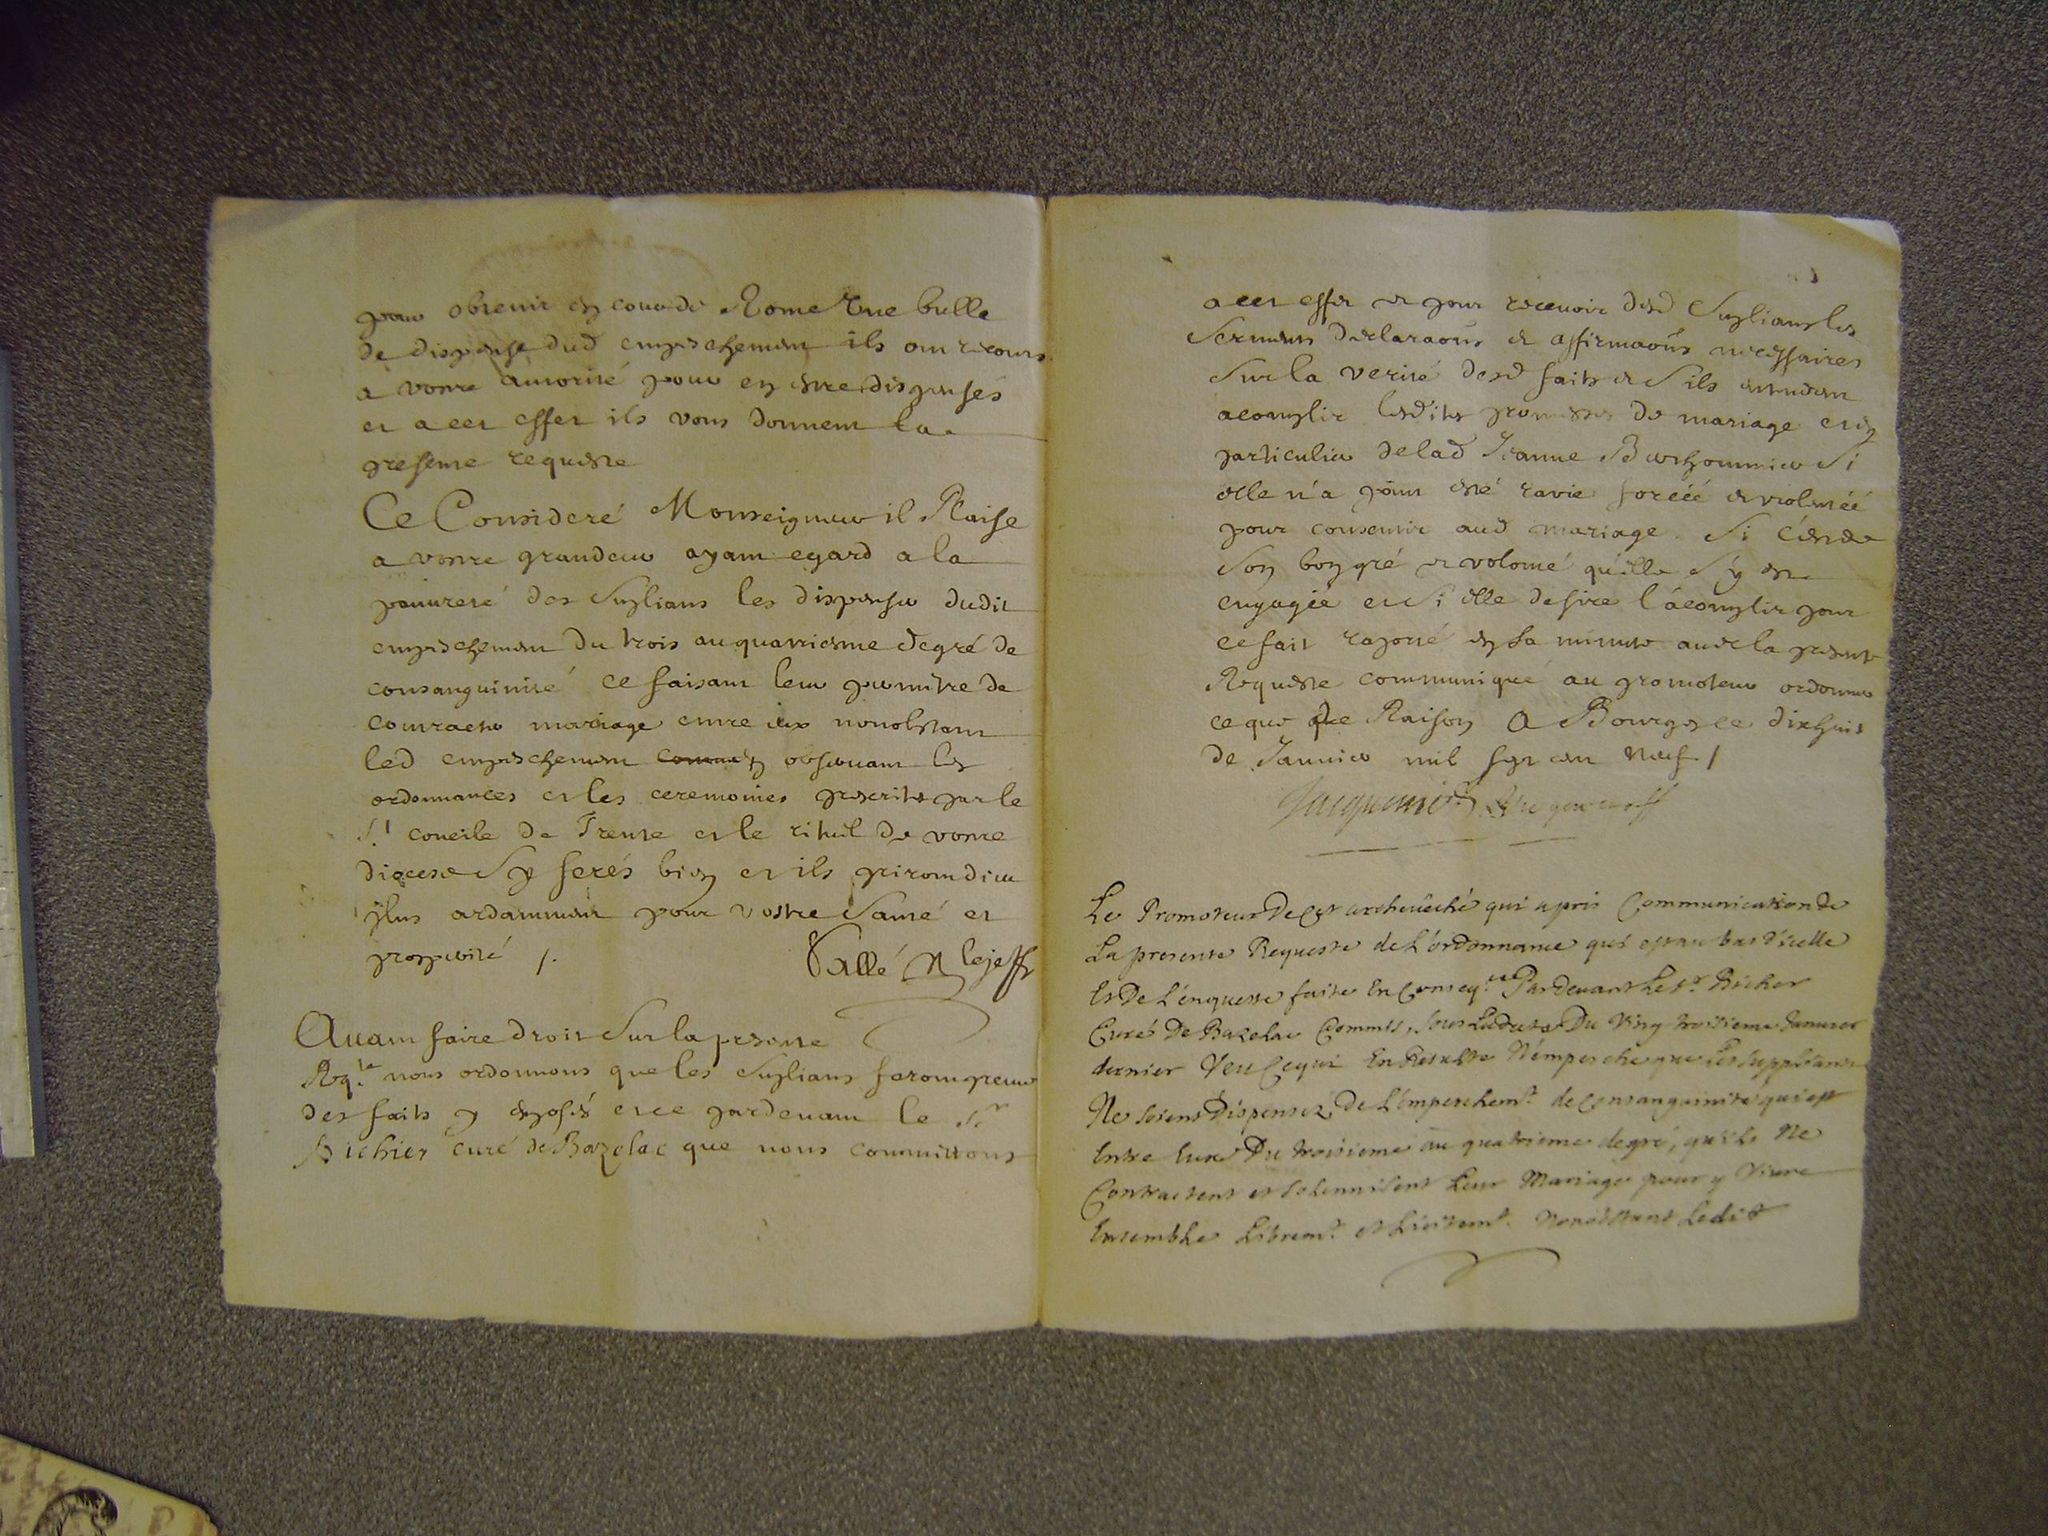 pour obtenir en cour de Rome une bulle
de dispense dud empeschement ils ont recours
a vostre autorité pour en estre dispensés
et a cet effet ils vous donnent la
presente requeste
Ce Consideré Monseigneur il Plaise
a vostre grandeur ayant egard a la
pauvreté des suplians les dispenser dudit
empeschement du trois au quatriesme degré de
consanguinité ce faisant leur permettre de
contracter mariage entre eux nonobstant
led empeschement observant les
ordonnances et les ceremonies prescrites par le
St concile de Trente et le rituel de vostre
diocese sy ferés bien et ils priront dieu
plus ardamment pour vostre santé et
prosperité /.
Vallé
Avant faire droit sur la presente
Reqte nous ordonnons que les suplians feront preuve
des faits y exposés et ce pardevant le Sr
Bichier curé de Bazelac que nous commettons
a cet effet et pour recevoir desd suplians les
serments declaraons et affirmaons necessaires
sur la verité desd faits et s'ils entendent
acomplir lesdites promesses de mariage et en
particulier de lad Jeanne Berthoumier si
elle n'a point esté ravie forcéé et violentéé
pour consentir aud mariage si c'est de
son bon gré et volonté qu'elle s'y est
engagée et si elle desire l'acomplir pour
ce fait raporté en sa minute avec la presente
Requeste communiqué au promoteur ordonner
ce que de Raison A Bourges ce dixhuit
de Janvier mil sept cent neuf /
Le Promoteur De Cet archevéché qui a pris Communication de
La presente Requeste de L'ordonnance qui est au bas d'icelle
Et De L'enqueste faite En conseqce Pardevant Le Sr Bichier
Curé De Bazelac Commis, sous La datte Du Vingt troisieme Janvier
dernier Veu Cequi En Resulte N'empesche que Les suppliants
Ne soient Dispensez De L'empeschemt de consanguinité qui est
Entre Eux Du troisieme au quatrieme degré, qu'ils Ne
Contractent et solennisent Leur Mariage pour y Vivre
Ensemble Libremt et Licitemt Nonobstant Ledit